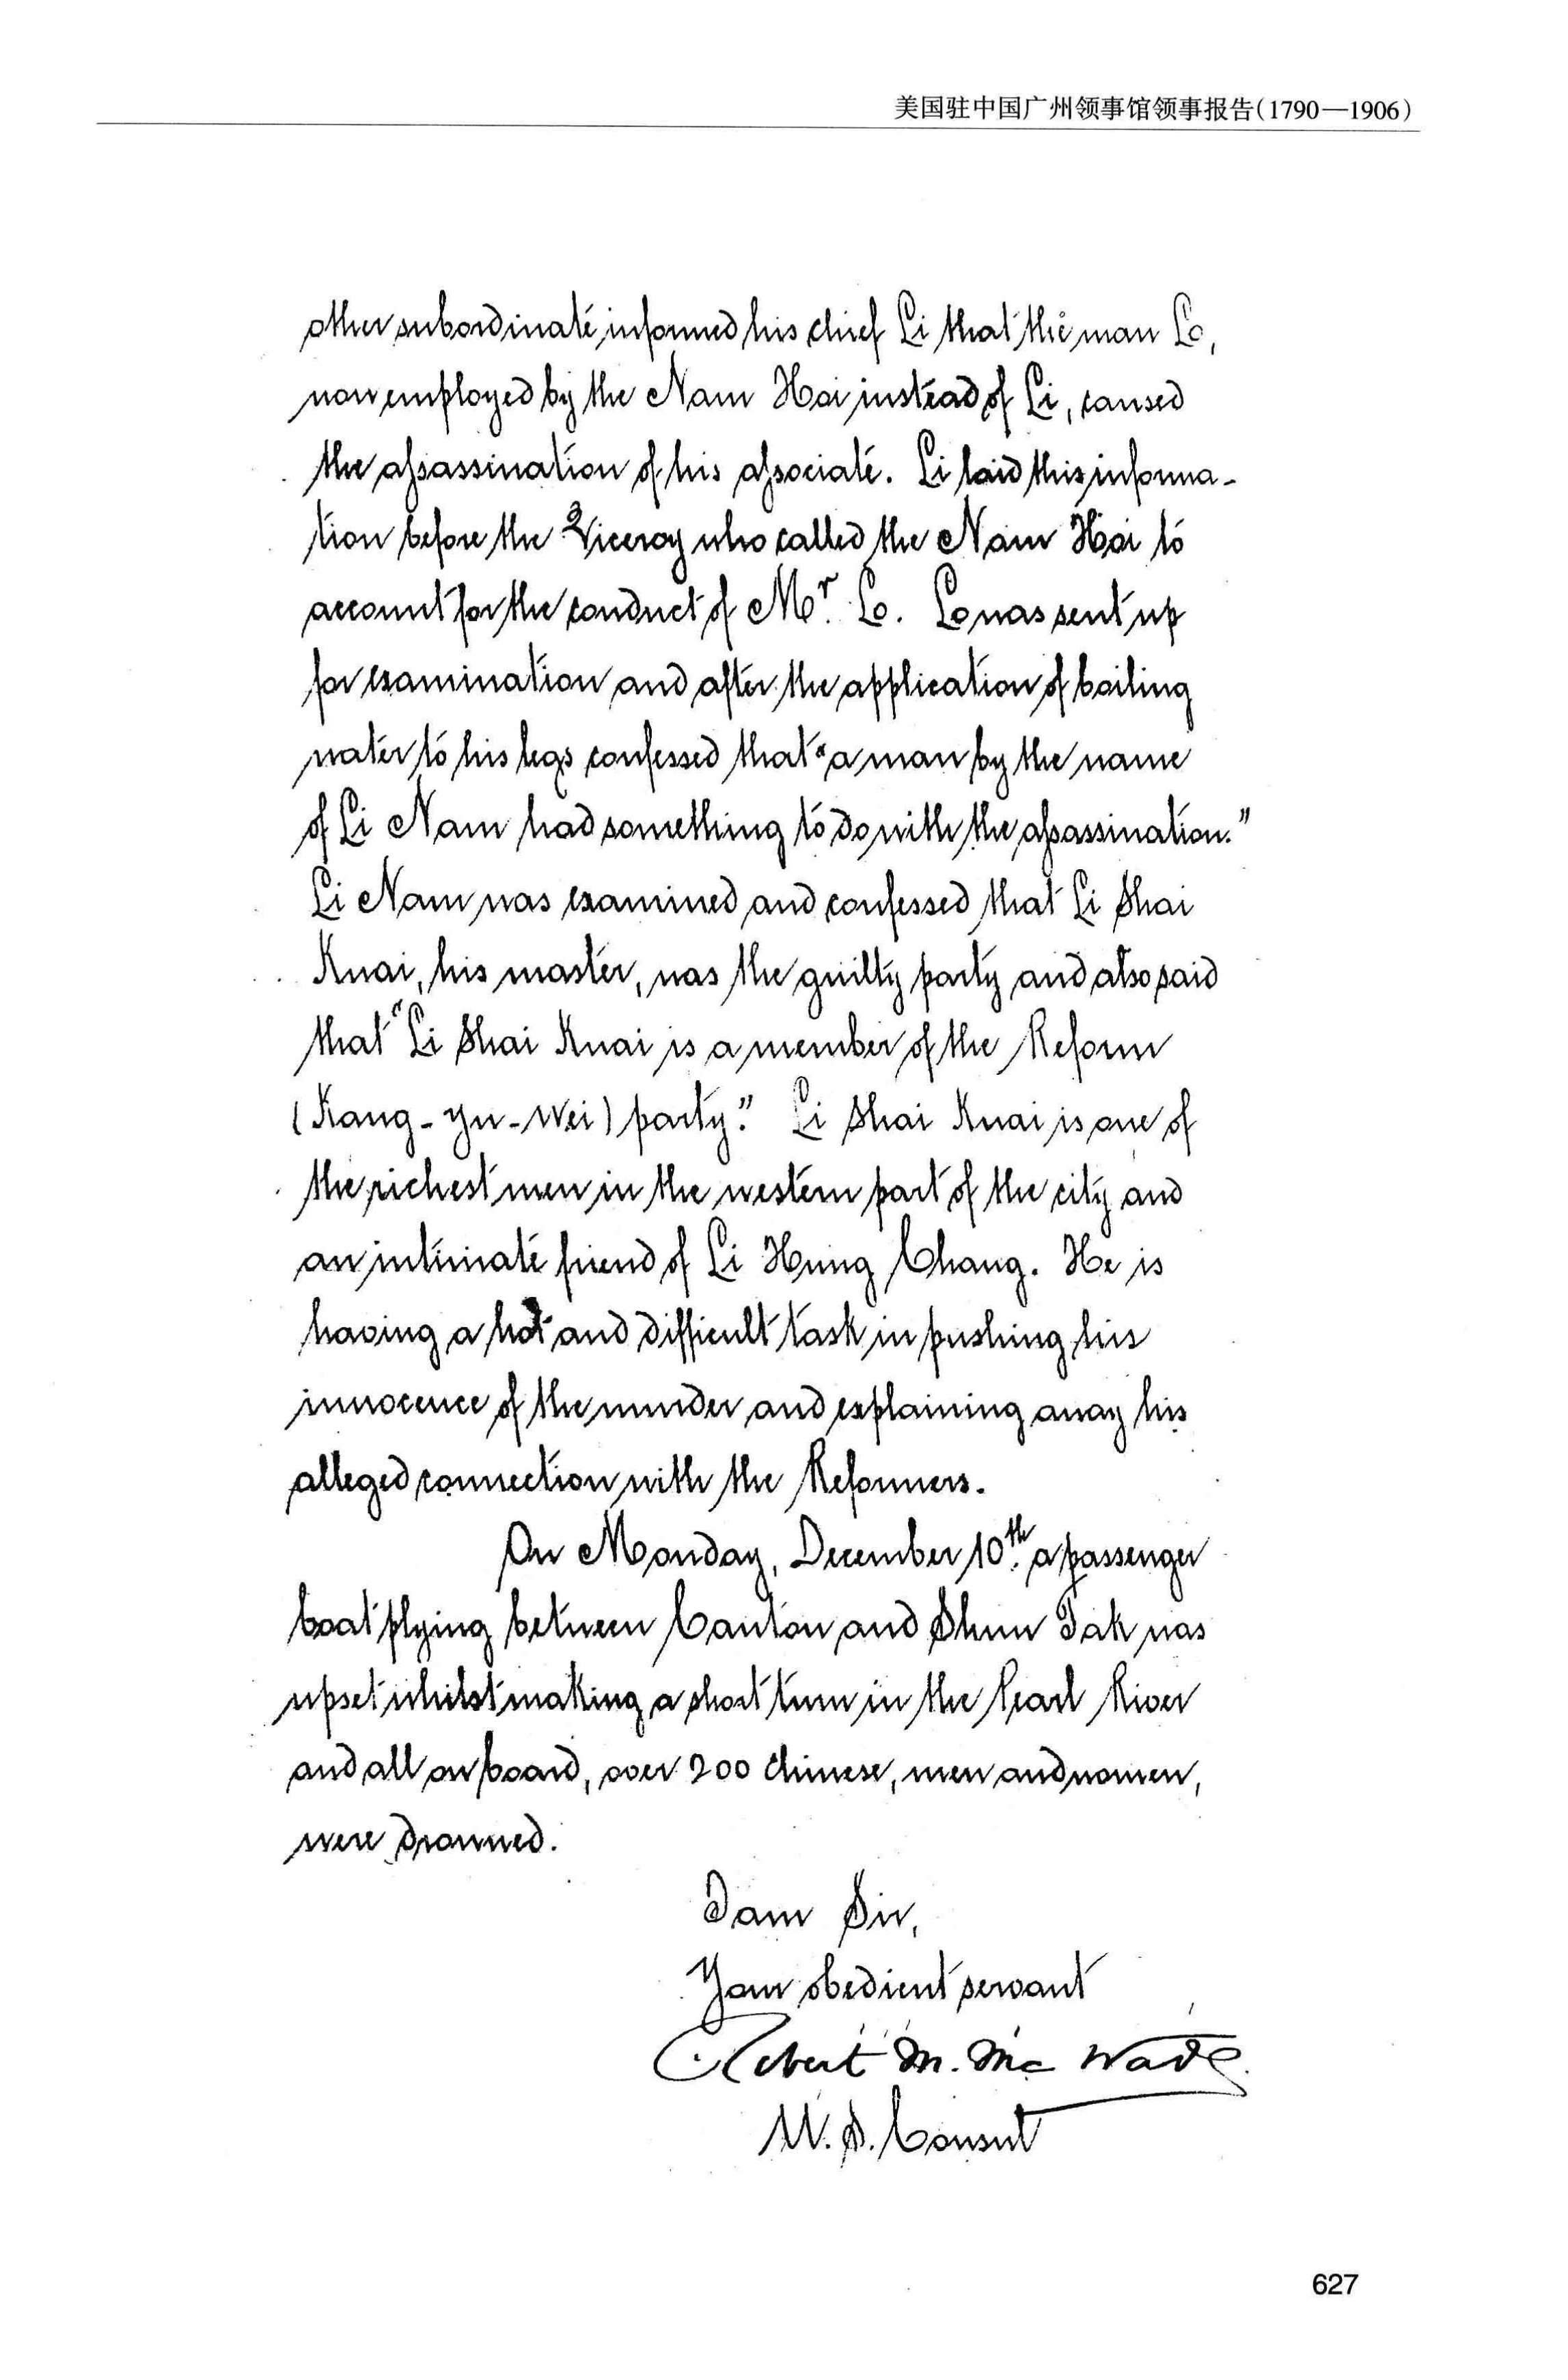 美国驻中国广州领事馆领事报告(1790—1906)
other subordinate informed his chief Li that the man Lo,
now employed by the Nam Hoi instead of Li, caused
the assassination of his associate. Li laid this informa-
tion before the Viceroy who called the Nam Hoi to
account for the conduct of Mr. Lo. Lo was sent up
for examination and after the application of boiling
water to his legs confessed that "a man by the name
of Li Nam had something to do with the assassination."
Li Nam was examined and confessed that Li Shai
Kuai, his master, was the guilty party and also said
that "Li Shai Kuai is a member of the Reform
(Kang-Yu-Wei) party." Li Shai Kuai is one of
the richest men in the western part of the city and
an intimate friend of Li Hung Chang. He is
having a hot and difficult task in pushing his
innocence of the murder and explaining away his
alleged connection with the Reformers.
On Monday, December 10th. a passenger
boat plying between Canton and Shun Tak was
upset whilst making a short turn in the Pearl River
and all on board, over 200 Chinese, men and women,
were drowned.
I am Sir,
Your obedient servant
Robert M. McWade
U.S. Consul
627